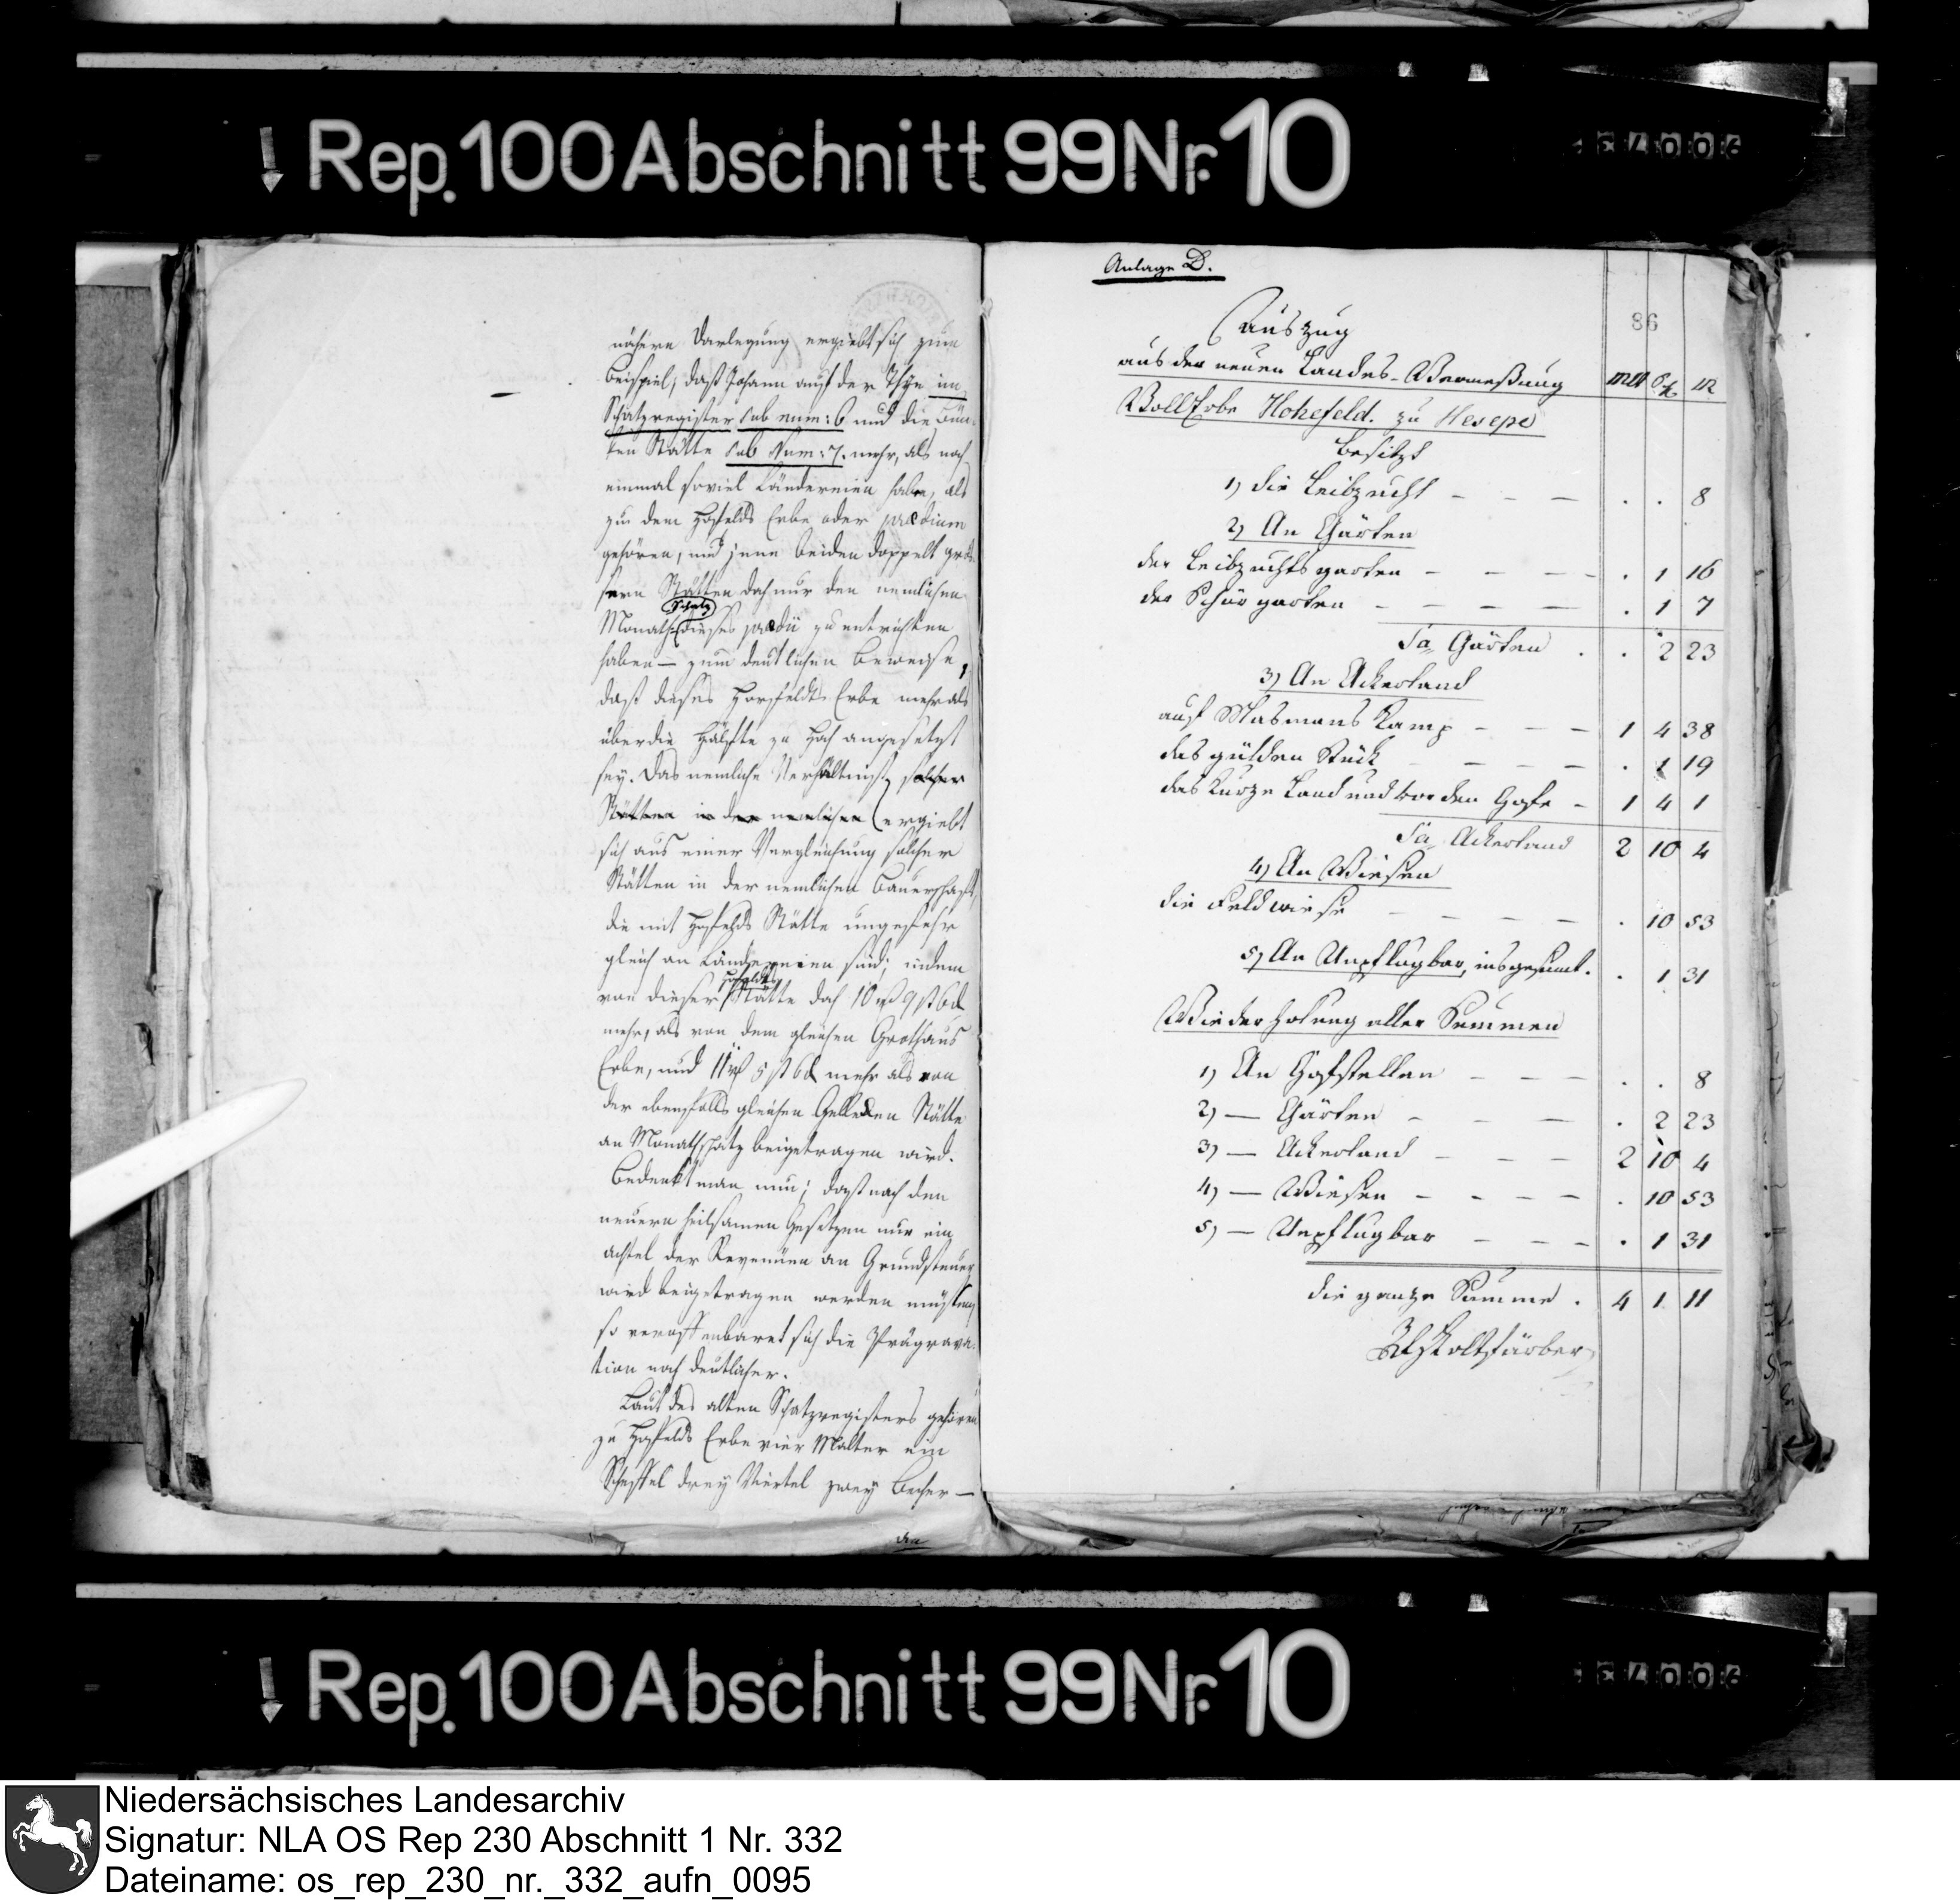 Rep. 100 Abschnitt 99 Nr. 10
nähere Darlegung ergiebt sich zum
Beispiel, daß Johann auf der Thye im
Schatzregister sub num: 6 und die Bün-
ten Stätte sub Num: 7. mehr, als noch
einmal soviel Ländereien habe, als
zu dem Hosfelds Erbe oder praedium
gehören, und jene beiden doppelt grö-
ßern Stätten doch nur den nemlichen
Schatz
Monaths dieses praedii zu entrichten
haben — zum deutlichen Beweise,
daß dieses Horsfeldts Erbe mehr als
über die Hälfte zu hoch angesetzt
sey. Das nemliche Verhältniß solcher
Stätten in der nemlichen ergiebt
sich aus einer Vergleichung solcher
Stätten in der nemlichen Bauerschaft,
die mit Hosfelds Stätte ungefehr
gleich an Ländereien sind; indem
Hosfelds
von dieser Stätte doch 10 rß 9 ß 6 d
mehr, als von dem gleichen Grothaus
Erbe, und 11 rß 5 ß 6 d mehr als von
der ebenfalls gleichen Stätte
an Monathschatz beigetragen wird.
Bedenkt man nun; daß nach den
neuern heilsamen Gesetzen nur ein
achtel der Revenüen an Grundsteuer
wird beigetragen werden müssen,
so veroffenbaret sich die Prägrava-
tion noch deutlicher.
Laut des alten Schatzregisters gehören
zu Hosfelds Erbe vier Malter ein
Scheffel drey Viertel zwey Becher —
den
Anlage D.
86
Auszug
aus der neuen Landes-Vermeßung
Voll Erbe Hohefeld. zu Hesepe
besitzt
1) die Leibzucht - - - . . 8
2) An Gärten
der Leibzuchts garten - - - - . 1 16
der Schür garten - - - - . 1 7
Sa. Gärten . . 2 23
3) An Ackerland
auf Masmans Kamp - - - 1 4 38
das gülden Stück - - - - . 1 19
das Kurze Land und vor den Hofe - 1 4 1
Sa. Ackerland 2 10 4
4) An Wiesen
die Feld wiese - - - - . 10 53
5) An Unpflugbar, insgesamt. . 1 31
Wiederholung aller Summen
1) An Hofstellen - - - . . 8
2) — Gärten - - - . 2 23
3) — Ackerland - - - 2 10 4
4) — Wiesen - - - - . 10 53
5) — Unpflugbar - - - . 1 31
die ganze Summe . 4 1 11
Rep. 100 Abschnitt 99 Nr. 10
Niedersächsisches Landesarchiv
Signatur: NLA OS Rep 230 Abschnitt 1 Nr. 332
Dateiname: os_rep_230_nr._332_aufn_0095